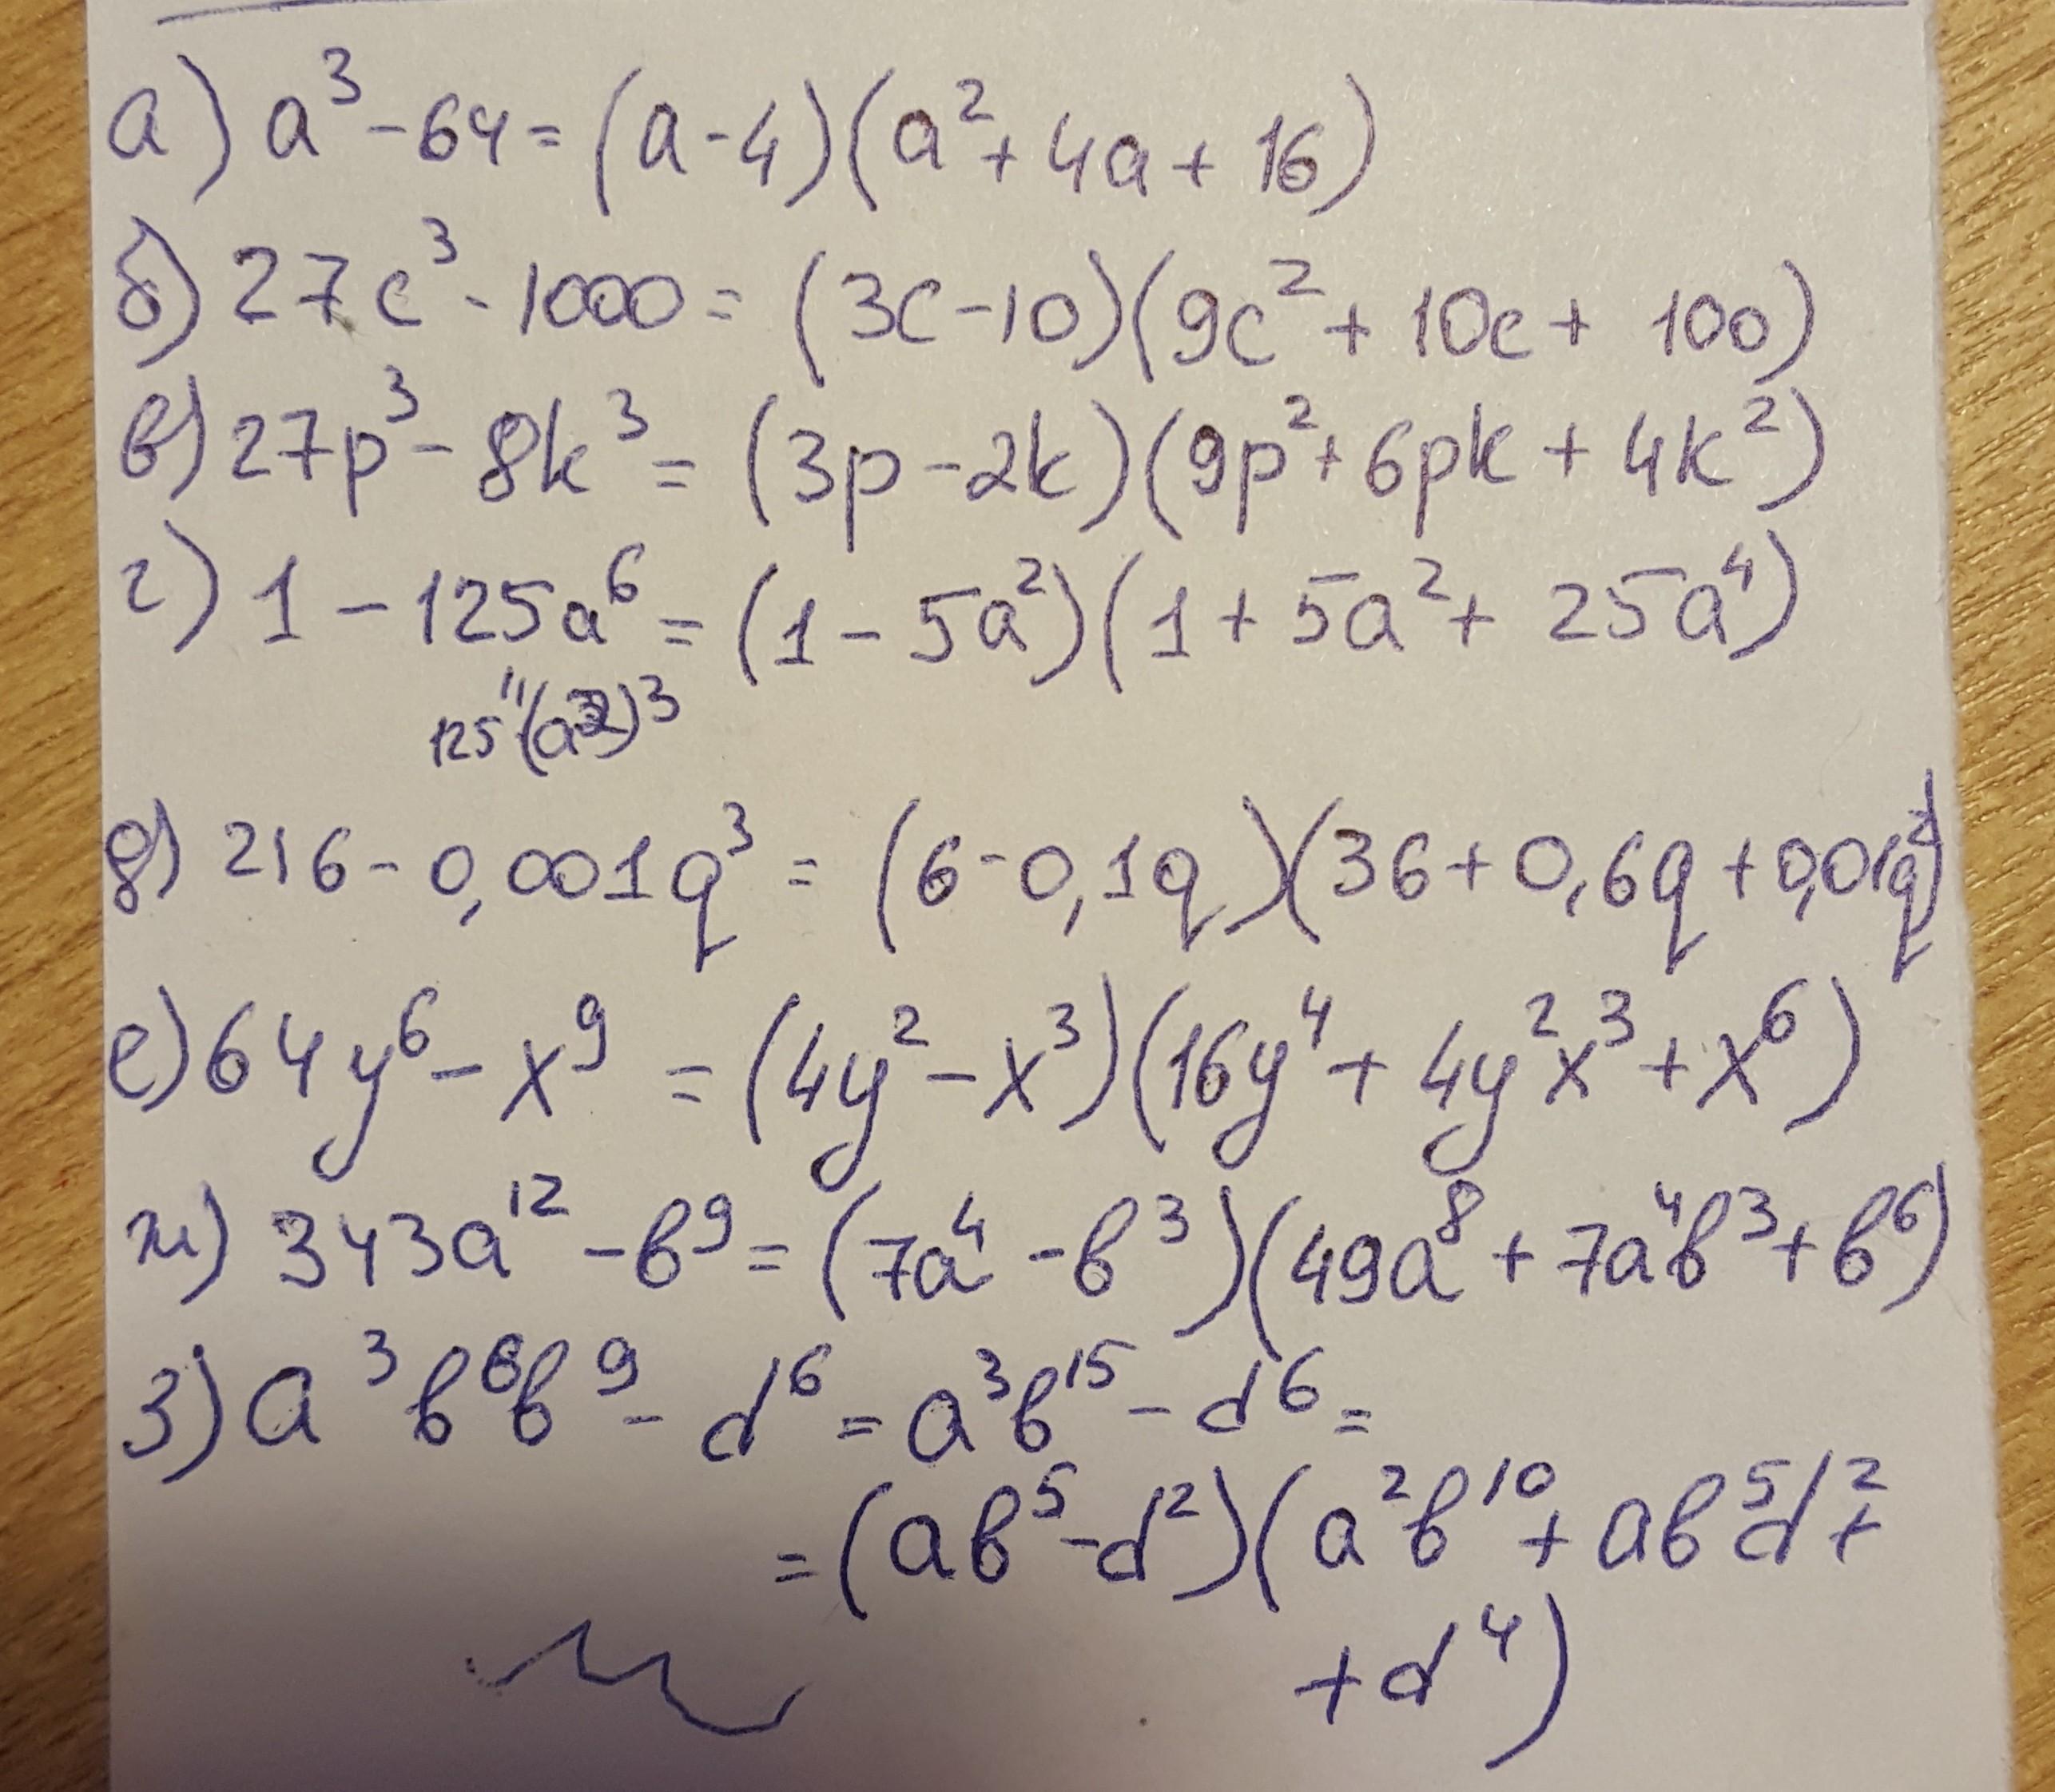 а) a³ - 64 = (a - 4)(a² + 4a + 16)
б) 27c³ - 1000 = (3c - 10)(9c² + 10c + 100)
в) 27p³ - 8k³ = (3p - 2k)(9p² + 6pk + 4k²)
г) 1 - 125a⁶ = (1 - 5a²)(1 + 5a² + 25a⁴)
125·(a²)³
д) 216 - 0,001q³ = (6 - 0,1q)(36 + 0,6q + 0,01q²)
е) 64y⁶ - x⁹ = (4y² - x³)(16y⁴ + 4y²x³ + x⁶)
ж) 343a¹² - b⁹ = (7a⁴ - b³)(49a⁸ + 7a⁴b³ + b⁶)
з) a³b⁶b⁹ - d⁶ = a³b¹⁵ - d⁶ =
= (ab⁵ - d²)(a²b¹⁰ + ab⁵d² +
+ d⁴)